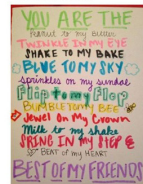 YOU ARE THE
Peanut to my Butter
TWINKLE IN MY EYE
SHAKE TO MY BAKE
BLUE TO MY SKY
sprinkles on my sundae
Flip to my Flop
BUMBLE TO MY BEE
Jewel On My Crown
Milk to my shake
SPRING IN MY STEP &
BEAT of my HEART
BEST OF MY FRIENDS